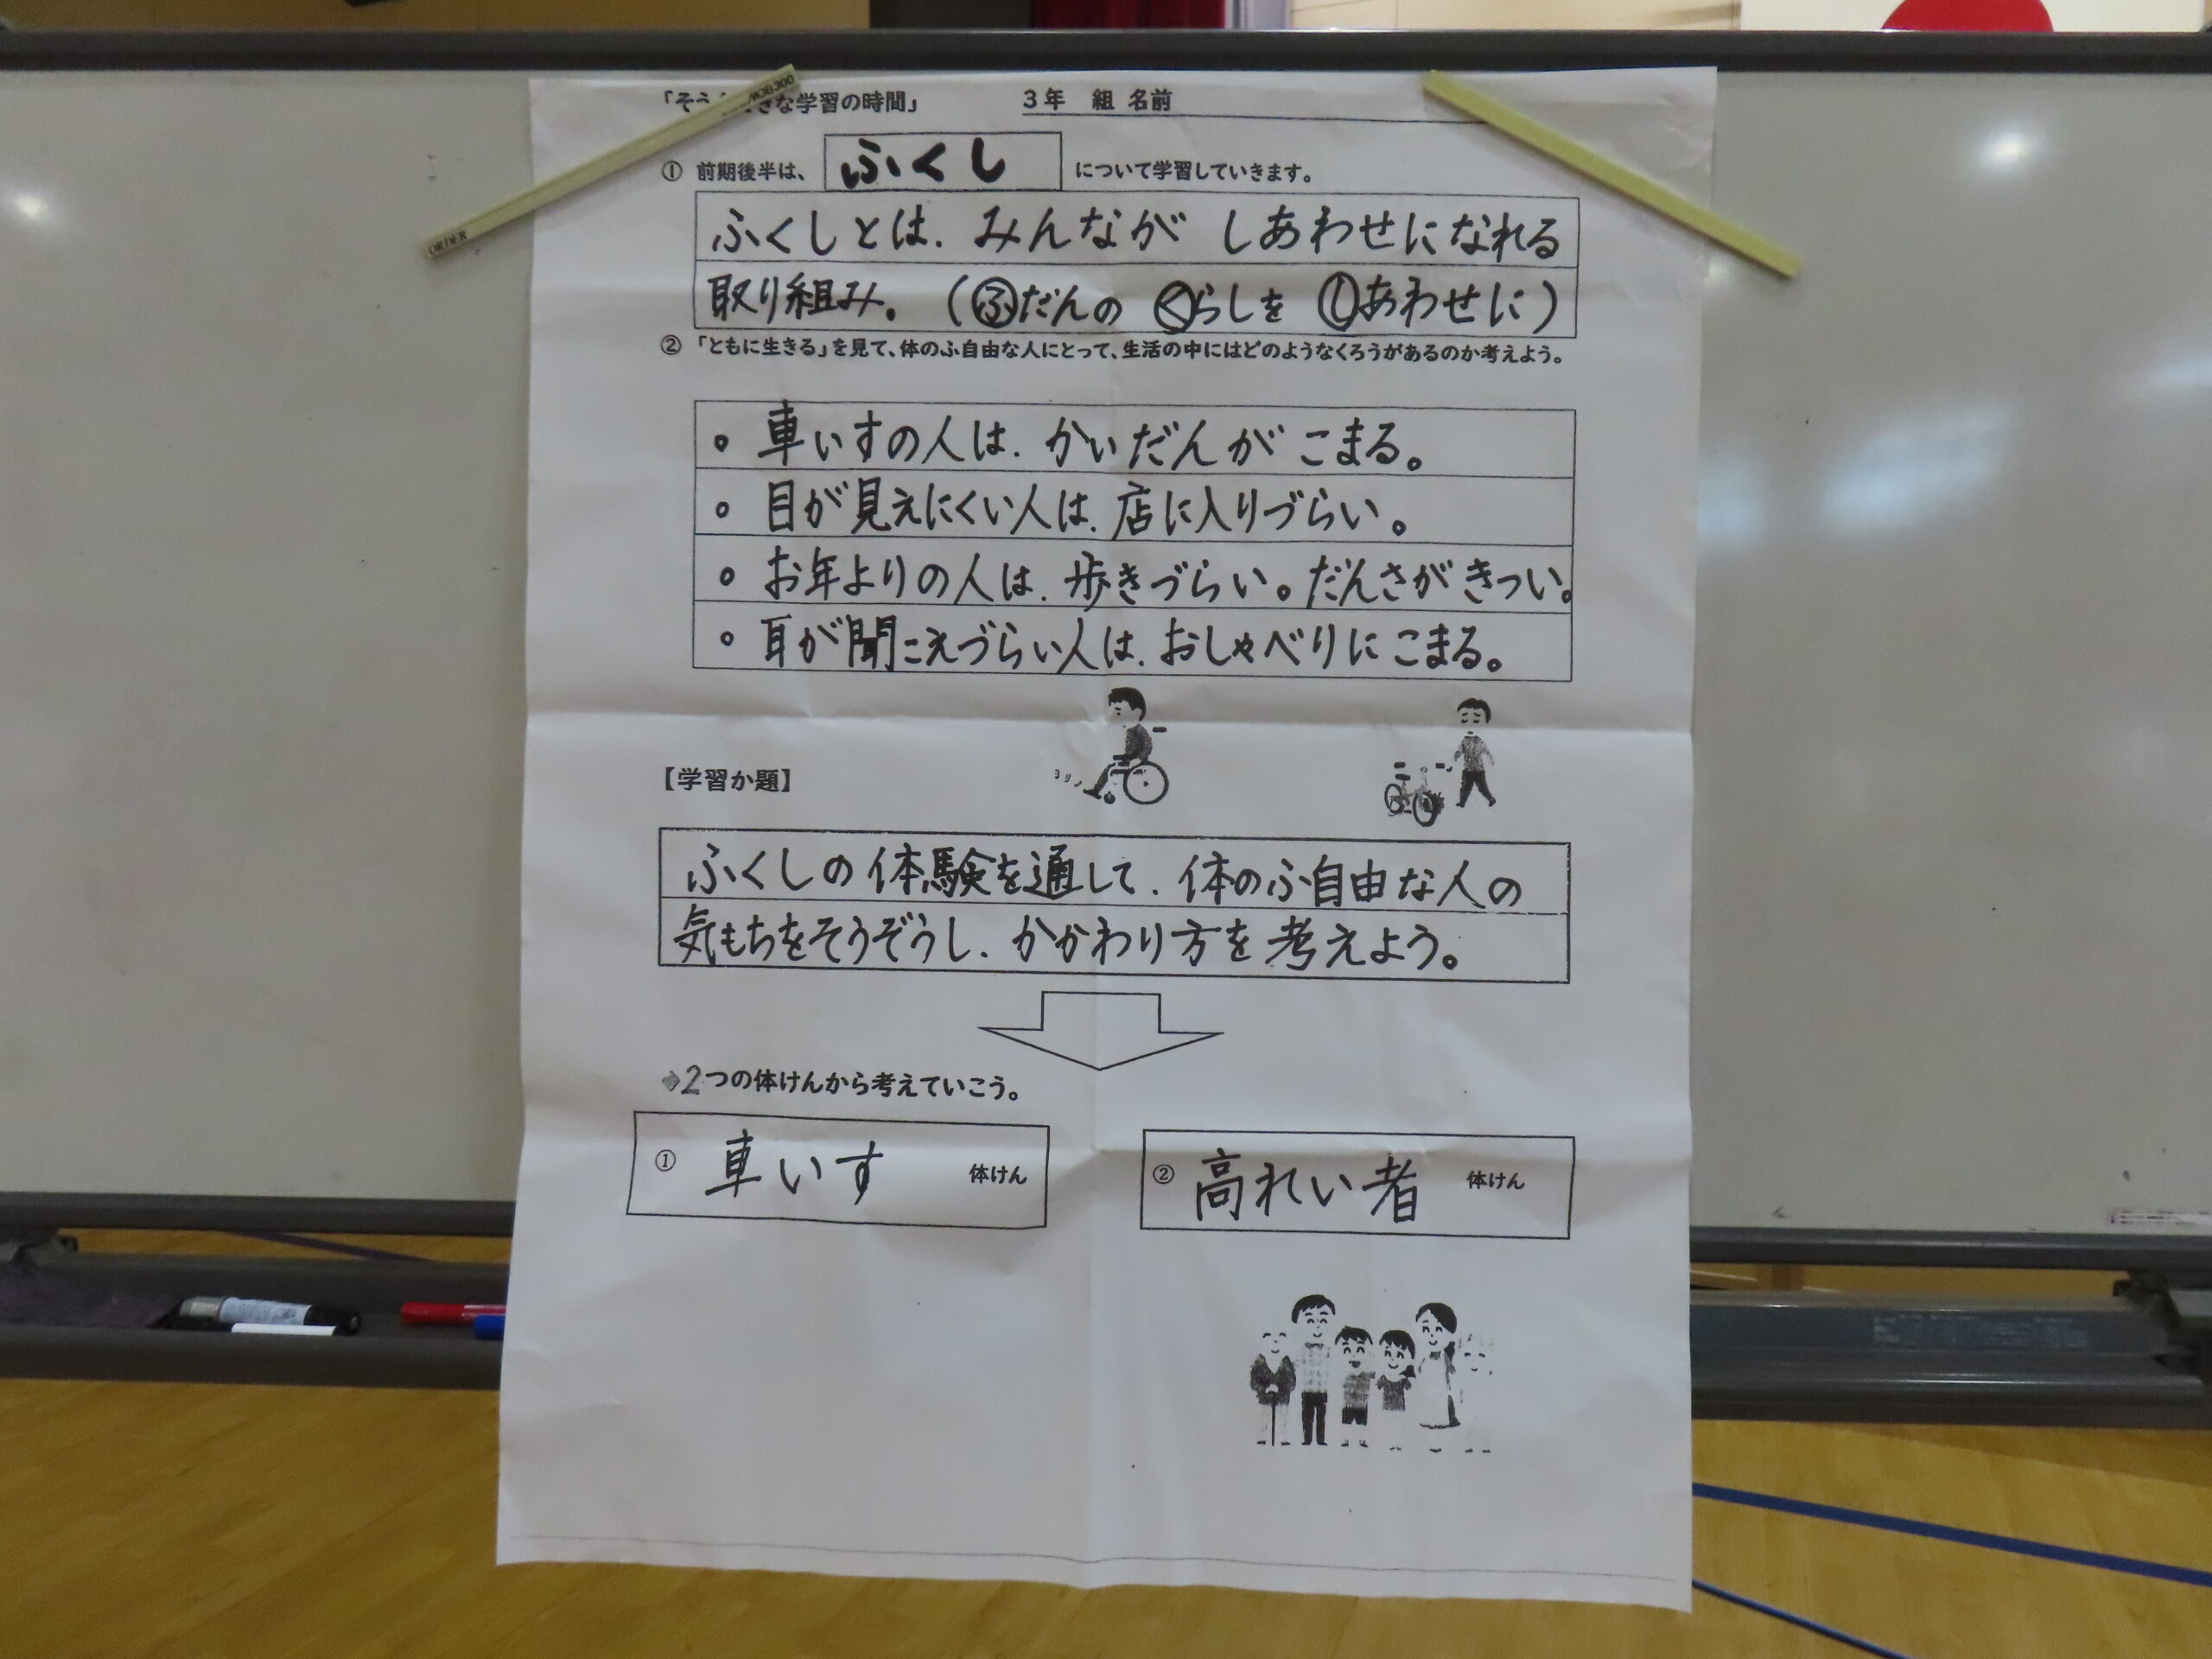 「そう きな学習の時間」 3年 組 名前
① 前期後半は、 ふくし について学習していきます。
ふくしとは、みんなが しあわせになれる
取り組み。(ふだんの くらしを しあわせに)
② 「ともに生きる」を見て、体のふ自由な人にとって、生活の中にはどのようなくろうがあるのか考えよう。
。車いすの人は、かいだんが こまる。
。目が見えにくい人は、店に入りづらい。
。お年よりの人は、歩きづらい。だんさが きつい。
。耳が聞こえづらい人は、おしゃべりに こまる。
【学習か題】
ふくしの体験を通して、体のふ自由な人の
気もちをそうぞうし、かかわり方を考えよう。
2つの体けんから考えていこう。
① 車いす 体けん
② 高れい者 体けん
ORDER